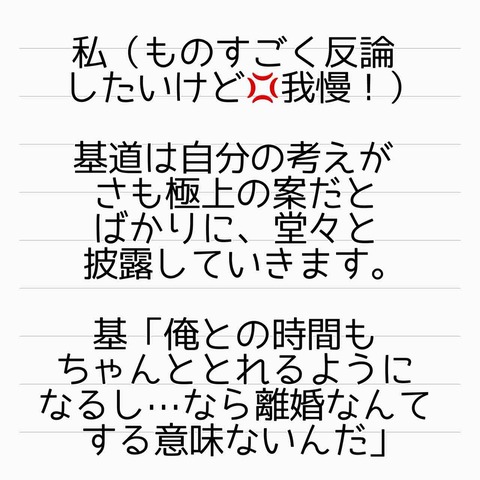 私（ものすごく反論
したいけど💢我慢！）
基道は自分の考えが
さも極上の案だと
ばかりに、堂々と
披露していきます。
基「俺との時間も
ちゃんととれるように
なるし…なら離婚なんて
する意味ないんだ」